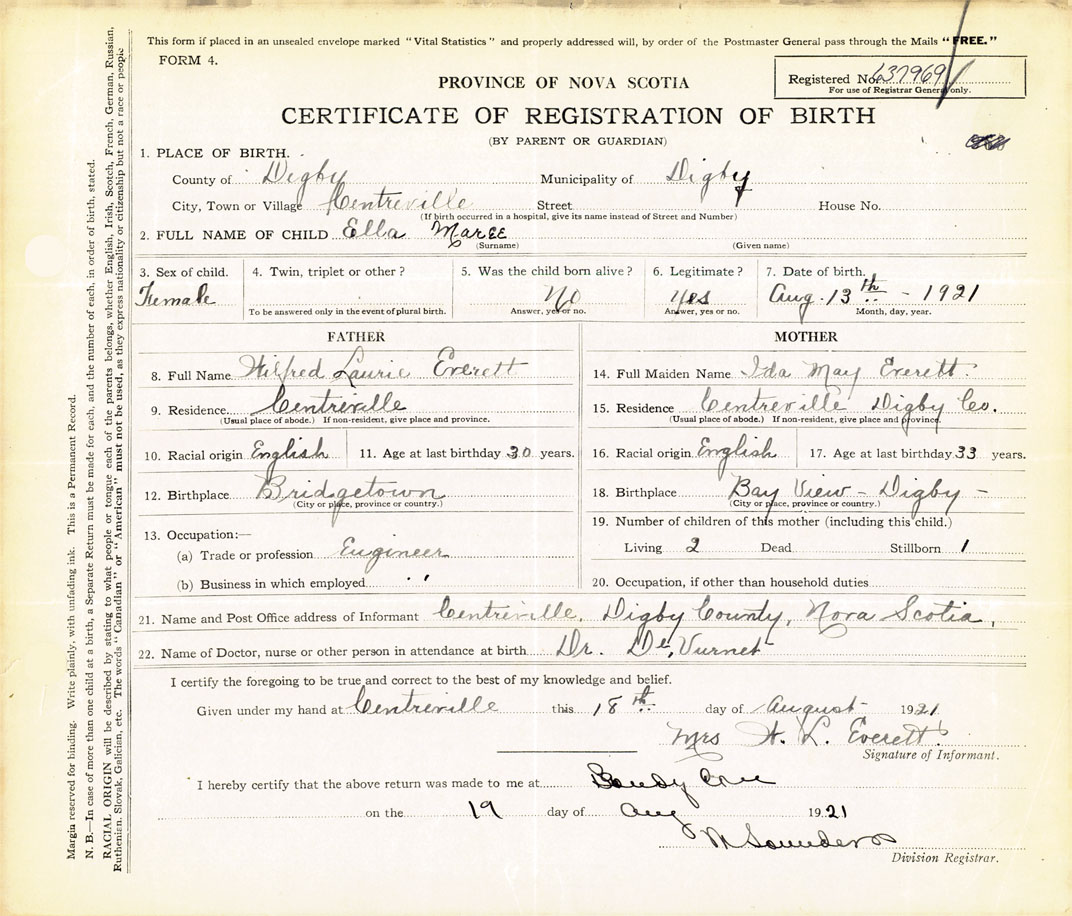 This form if placed in an unsealed envelope marked "Vital Statistics" and properly addressed will, by order of the Postmaster General pass through the Mails "FREE."
FORM 4.
Registered No. 637969
For use of Registrar General only.
PROVINCE OF NOVA SCOTIA
CERTIFICATE OF REGISTRATION OF BIRTH
(BY PARENT OR GUARDIAN)
1. PLACE OF BIRTH.
County of Digby Municipality of Digby
City, Town or Village Centreville Street House No.
(If birth occurred in a hospital, give its name instead of Street and Number)
2. FULL NAME OF CHILD Ella Maree
(Surname) (Given name)
3. Sex of child. Female
4. Twin, triplet or other?
To be answered only in the event of plural birth.
5. Was the child born alive? No
Answer, yes or no.
6. Legitimate? Yes
Answer, yes or no.
7. Date of birth. Aug. 13th - 1921
Month, day, year.
FATHER
8. Full Name Wilfred Laurie Everett
9. Residence Centreville
(Usual place of abode.) If non-resident, give place and province.
10. Racial origin English 11. Age at last birthday 30 years.
12. Birthplace Bridgetown
(City or place, province or country.)
13. Occupation:—
(a) Trade or profession Engineer
(b) Business in which employed " "
MOTHER
14. Full Maiden Name Ida May Everett.
15. Residence Centreville Digby Co.
(Usual place of abode.) If non-resident, give place and province.
16. Racial origin English 17. Age at last birthday 33 years.
18. Birthplace Bay View - Digby -
(City or place, province or country.)
19. Number of children of this mother (including this child.)
Living 2 Dead Stillborn 1
20. Occupation, if other than household duties
21. Name and Post Office address of Informant Centreville, Digby County, Nova Scotia,
22. Name of Doctor, nurse or other person in attendance at birth Dr. De Vurnet
I certify the foregoing to be true and correct to the best of my knowledge and belief.
Given under my hand at Centreville this 18th day of August 1921
Mrs W. L. Everett.
Signature of Informant.
I hereby certify that the above return was made to me at Sandy Cove
on the 19 day of Aug 1921
M Saunders
Division Registrar.
Margin reserved for binding. Write plainly, with unfading ink. This is a Permanent Record.
N. B.—In case of more than one child at a birth, a Separate Return must be made for each, and the number of each, in order of birth, stated.
RACIAL ORIGIN will be described by stating to what people or tongue each of the parents belongs, whether English, Irish, Scotch, French, German, Russian,
Ruthenian. Slovak, Galician, etc. The words "Canadian" or "American" must not be used, as they express nationality or citizenship but not a race or people